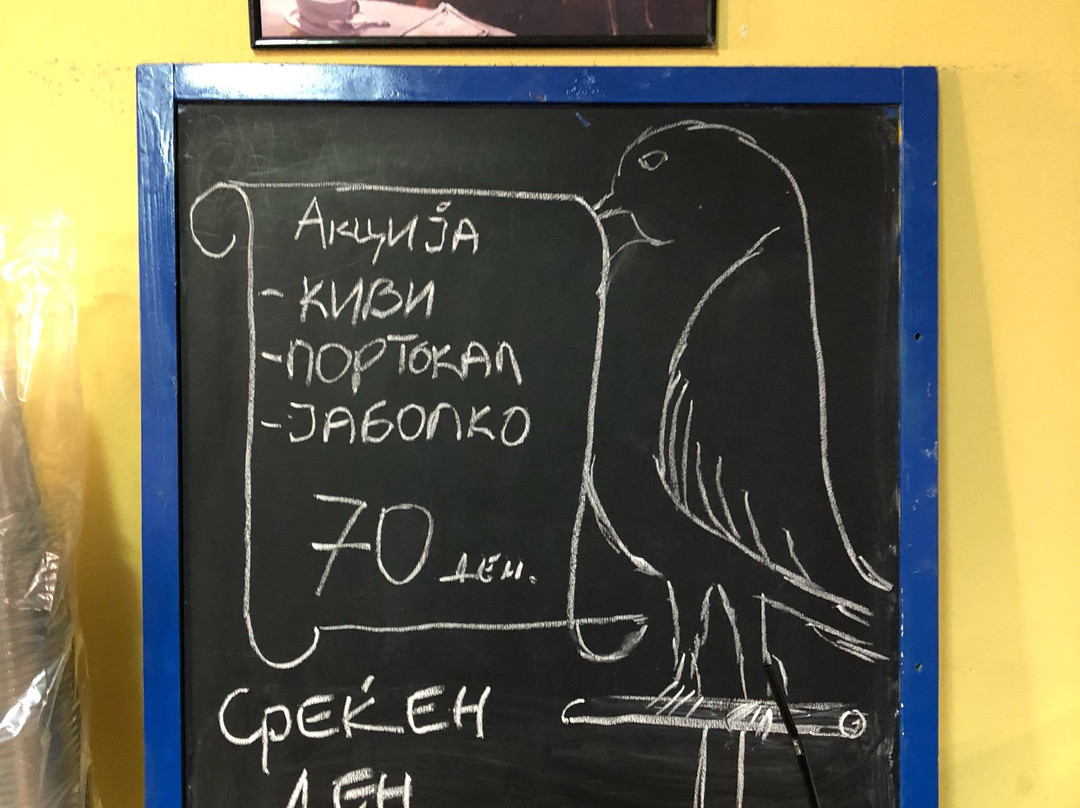 Акција
- КИВИ
- ПОРТОКАЛ
- ЈАБОЛКО
70 ДЕН.
СРЕЌЕН
ДЕН